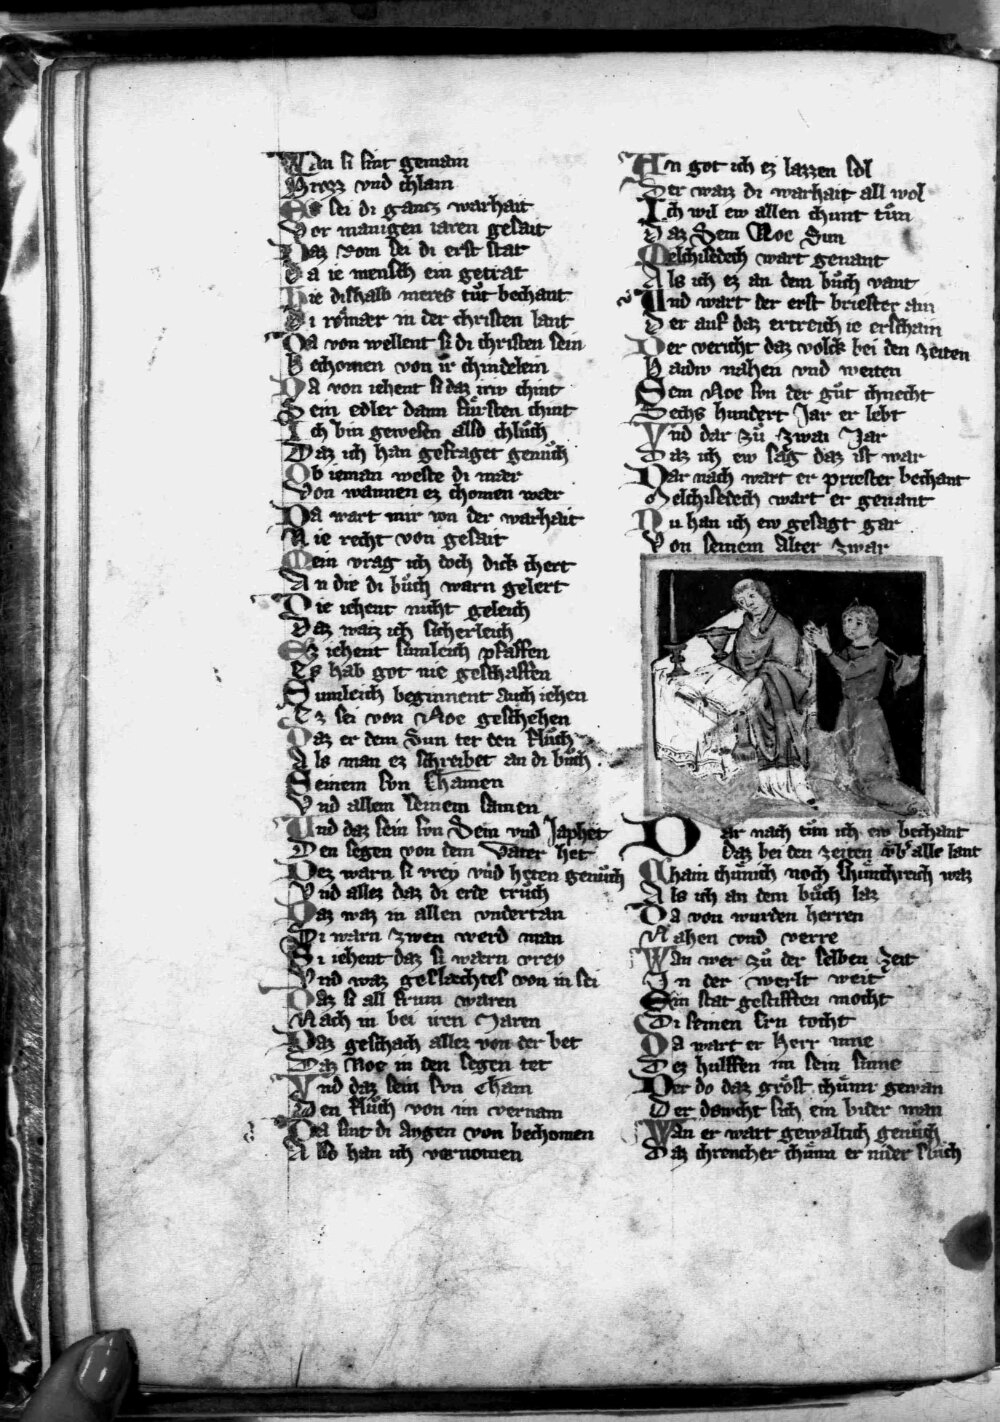 Wan si sint gemain
Grozz vnd chlain
Es sei di gantz warhait
Vor manigen iaren gesait
Daz Rom sei di erst stat
Da ie mensch ein getrat
Die dishalb meres tůt bechant
Di rômær in der christen lant
Da von wellent si di christen sein
Bechomen von ir chindelein
Da von iehent si daz chint
Sein edler dann fůrsten chint
Ich bin gewesen also chlůch
Daz ich han gefraget genůch
Ob ieman weste di mær
Von wannen ez chomen wær
Da wart mir von der warhait
Nie recht von gesait
Mein vrag ich doch dick chert
An die di bůch warn gelert
Die iehent nicht geleich
Daz waiz ich sicherleich
Ez iehent sumleich pfaffen
Es hab got nie geschaffen
Sumleich beginnent auch iehen
Ez sei von Noe geschehen
Daz er dem Sun tet den flůch
Als man ez schreibet an di bůch
Seinem svn Chamen
Vnd allem seinem samen
Und daz sein svn Sem vnd Japhet
Den segen von dem Vater het
Dez warn si vrey vnd heten genůch
Vnd allez daz di erde trůch
Daz waz in allen vndertan
Di warn zwen werd man
Si iehent daz si warn vrey
Vnd waz geslæchtes von in sei
Daz si all frum waren
Nach in bei iren Jaren
Daz geschach allez von der bet
Daz Noe in den segen tet
Vnd daz sein svn Cham
Den flůch von im vernam
Da sint di aygen von bechomen
Also han ich vernomen
An got ich ez lazzen sol
Der waiz di warhait all wol
Ich wil ew allen chunt tůn
Daz Sem Noe Sun
Melchisedech wart genant
Als ich ez an dem bůch vant
Und wart der erst briester ain
Der auf daz ertreich ie erschain
Der vericht daz volck bei den zeiten
Baidiv nahen vnd weiten
Sem Noe svn der gůt chnecht
Sechs hundert Jar er lebt
Vnd dar zů zwai Jar
Daz ich ew sag daz ist war
Dar nach wart er priester bechant
Melchisedech wart er genant
Nu han ich ew gesagt gar
Von seinem alter zwar
Dar nach tůn ich ew bechant
daz bei den zeiten vbˢ alle lant
Chain chůnich noch chůnchreich waz
Als ich an dem bůch laz
Da von wurden herren
Nahen vnd verre
Wan wer zů der selben zeit
In der werlt weit
Ein stat gestifften mocht
Di seinen sin tocht
Da wart er herr inne
Dez hulffen im sein sinne
Der do daz grôst chůnn gewan
Der dowcht sich ein bider man
Wan er wart gewaltich genůch
Daz chrencher chůnn er nider slůch